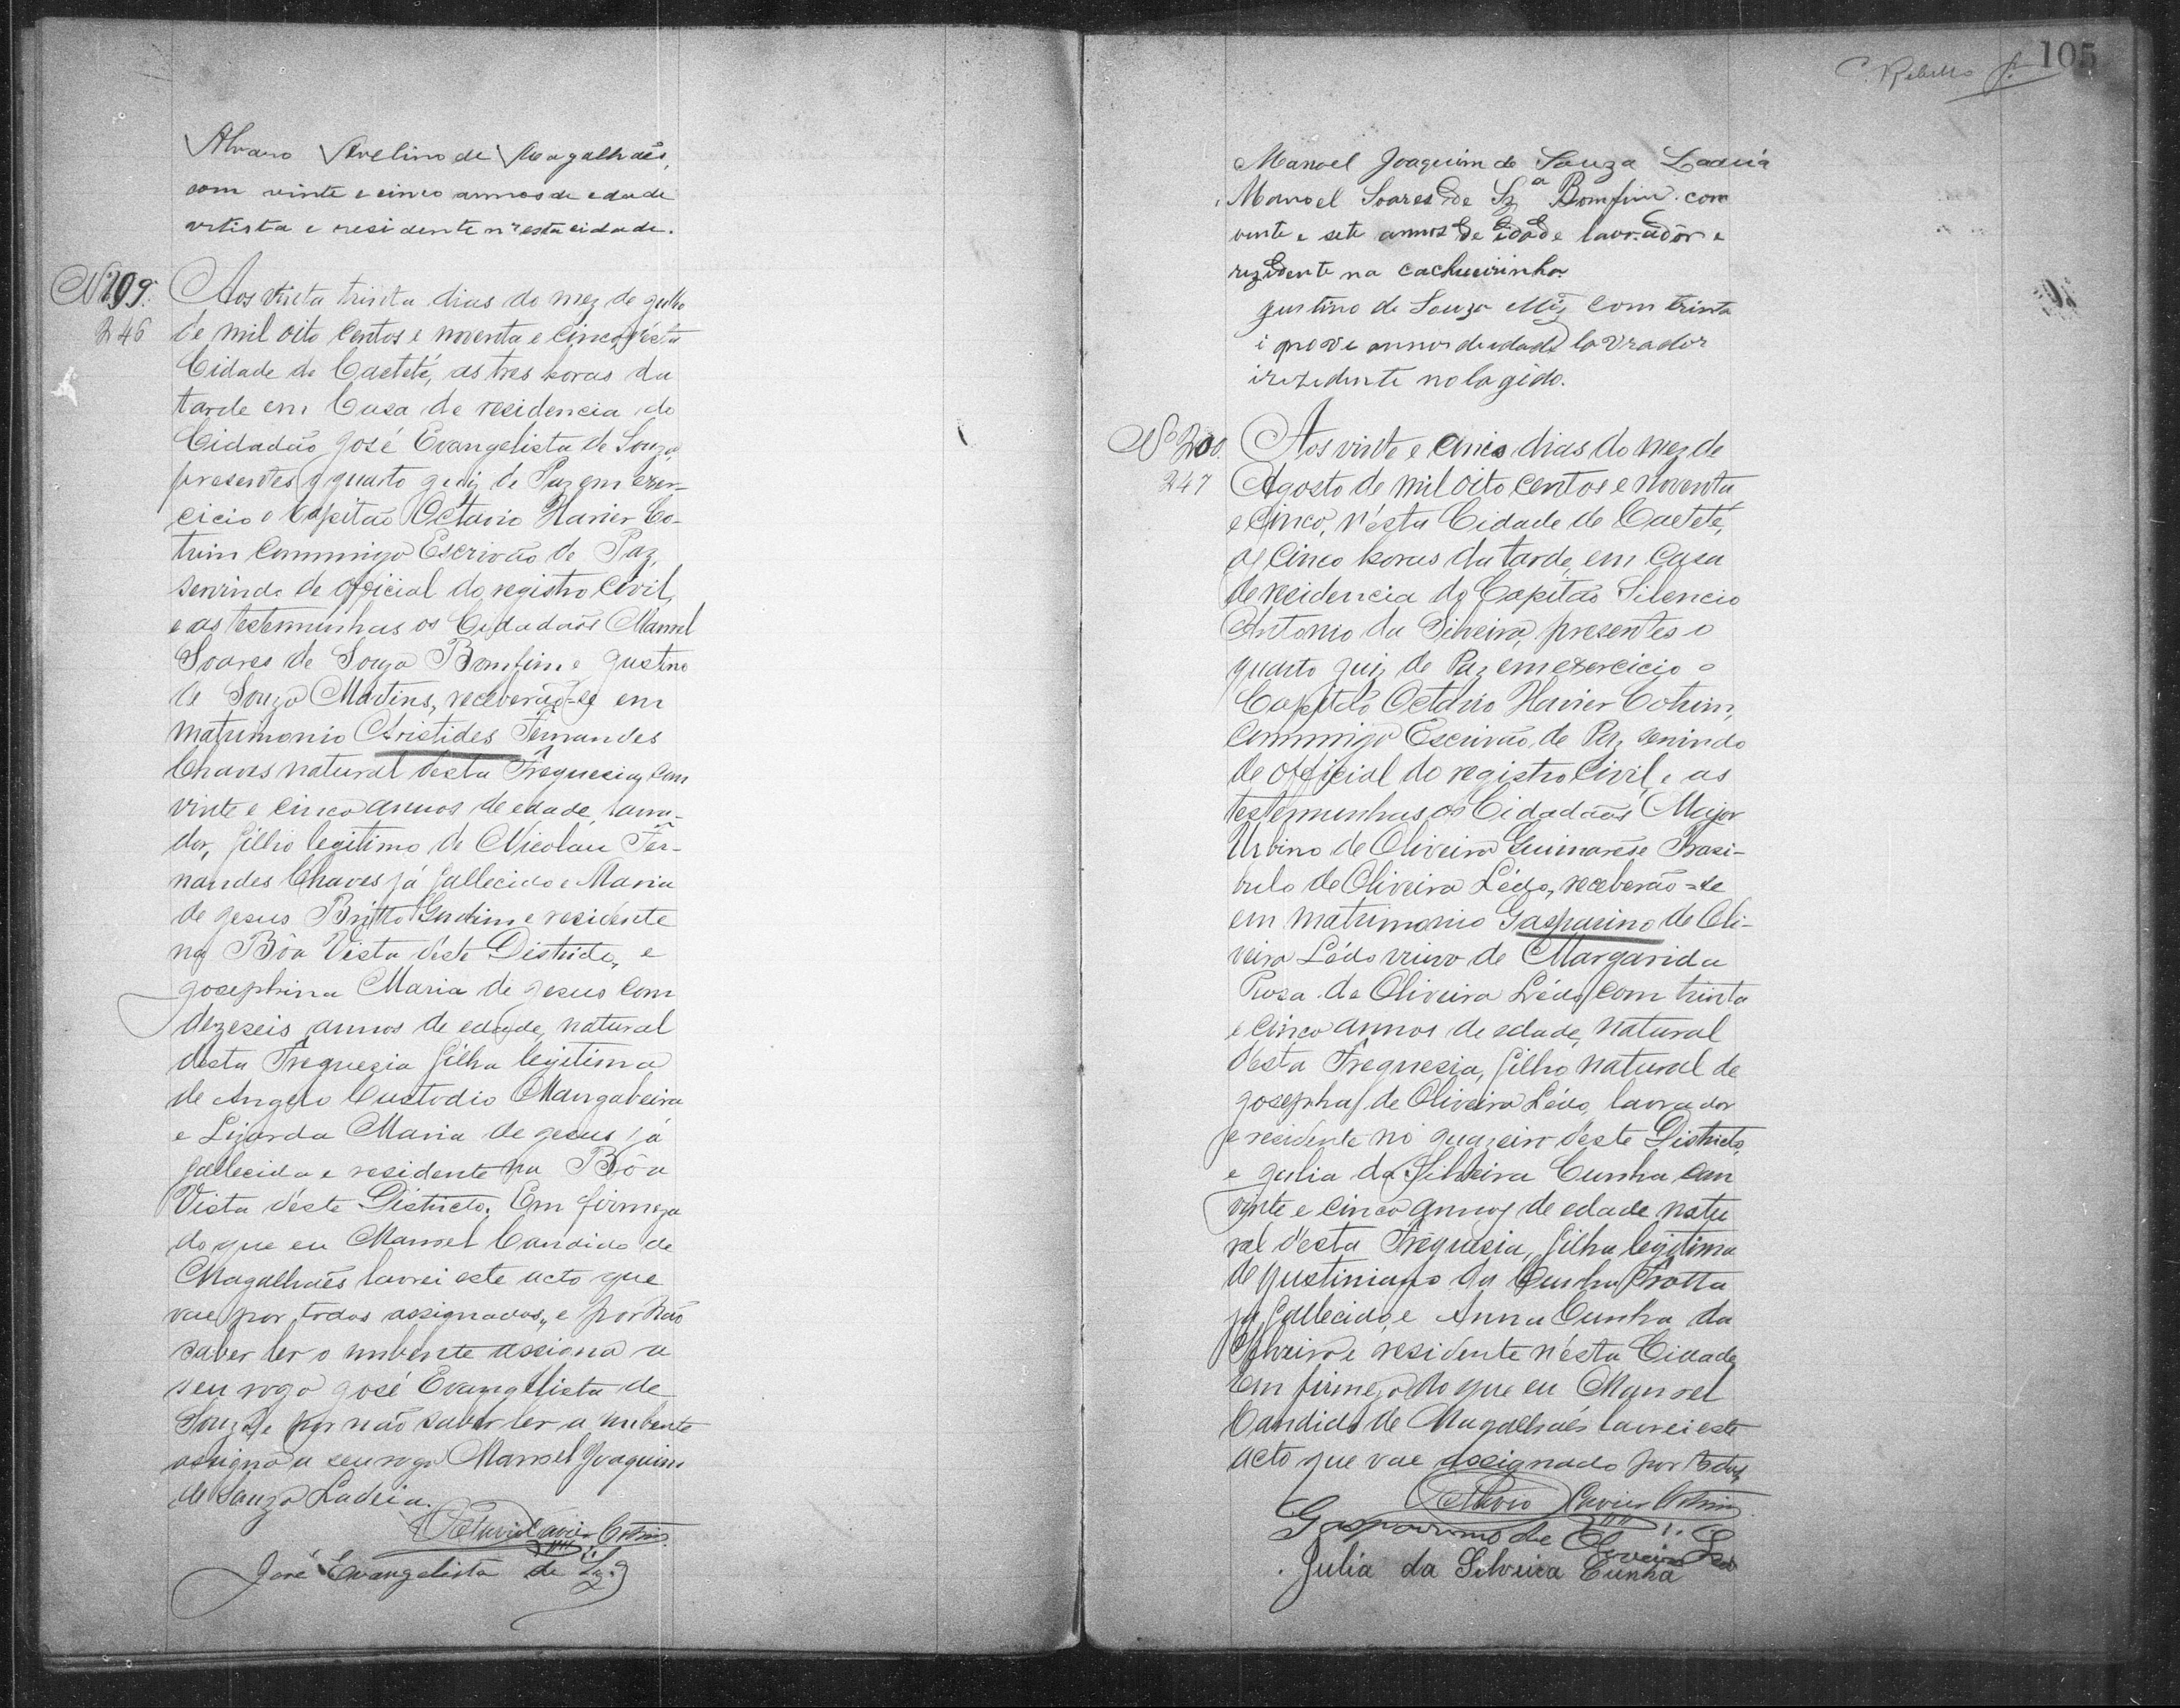 Alvaro Avelino de Magalhães,
com vinte e cinco annos de edade
artista e residente n'esta cidade.
Nº 199.
246
Aos trinta dias do mez de Julho
de mil oito centos e noventa e cinco, n'esta
Cidade de Caeteté, as tres horas da
tarde em Casa de residencia do
Cidadão José Evangelista de Souza,
presentes o quarto Juiz de Paz em exer-
cicio o Capitão Octavio Xavier Co-
trim commigo Escrivão de Paz,
servindo de official do registro Civil,
e as testemunhas os Cidadãos Manoel
Soares de Souza Bomfim e Justino
de Souza Martins, receberão-se em
matrimonio Aristides Fernandes
Chaves natural desta Freguesia, com
vinte e cinco annos de edade, lavra-
dor, filho legitimo de Nicoláu Fer-
nandes Chaves já fallecido e Maria
de Jesus Britto Gondim e residente
na Bôa Vista d'este Districto, e
Josephina Maria de Jesus com
dezeseis annos de edade, natural
desta Freguezia filha legitima
de Angelo Custodio Mangabeira
e Lizarda Maria de Jesus já
fallecida e residente na Bôa
Vista d'éste Districto. Em firmeza
do que eu Manoel Candido de
Magalhaẽs lavrei este acto que
vae por todos assignados, e por não
saber ler o nubente assigna a
seu rogo José Evangelista de
Souza e por não saber ler a nubente
assigna a seu rogo Manoel Joaquim
de Souza Ladeia.
Octavio Xavier Cotrim.
José Evangelista de Sz.ª
C. Rebello
105
Manoel Joaquim de Souza Ladeia
Manoel Soares de Sz.ª Bomfim com
vinte e sete annos de idade lavrador e
rezidente na cachueirinha.
Justino de Souza Miz com trinta
i nove annos de idade lavrador
i rezidente no lagêdo.
Nº 200.
247
Aos vinte e cinco dias do mez de
Agosto de mil oito centos e noventa
e cinco, n'ésta Cidade de Caeteté,
as cinco horas da tarde, em Casa
de residencia do Capitão Silencio
Antonio da Silveira, presentes o
quarto Juiz de Paz em exercicio o
Capitão Octavio Xavier Cotrim,
commigo Escrivão de Paz servindo
de official do registro Civil, e as
testemunhas os Cidadãos Major
Urbino de Oliveira Guimarẽs e Trasi-
bulo de Oliveira Lédo, receberão-se
em matrimonio Gasparino de Oli-
veira Lédo viuvo de Margarida
Rosa de Oliveira Lédo, com trinta
e cinco annos de edade, natural
desta Freguesia, filho natural de
Josepha de Oliveira Lédo, lavrador
e residente no Juazeiro d'este Districto,
e Julia da Silveira Cunha com
vinte e cinco annos de edade natu
ral d'esta Freguesia, filha legitima
de Justiniano da Cunha Trotta
já fallecido, e Anna Cunha da
Silveira e residente n'ésta Cidade
Em firmeza do que eu Manoel
Candido de Magalhaẽs lavrei este
acto que vae assignado por todos
Octavio Xavier Cotrim.
Gasparino de Oliveira Ledo
Julia da Silveira Cunha